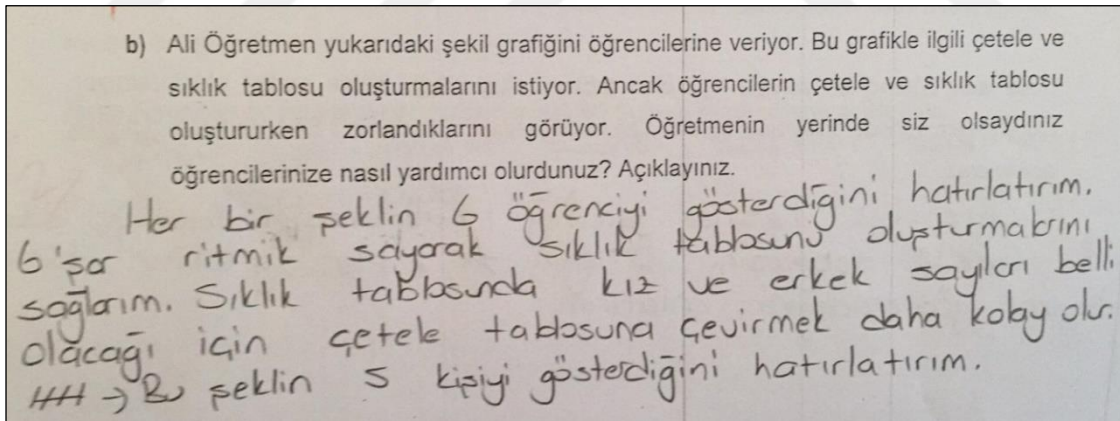 b) Ali Öğretmen yukarıdaki şekil grafiğini öğrencilerine veriyor. Bu grafikle ilgili çetele ve
sıklık tablosu oluşturmalarını istiyor. Ancak öğrencilerin çetele ve sıklık tablosu
oluştururken zorlandıklarını görüyor. Öğretmenin yerinde siz olsaydınız
öğrencilerinize nasıl yardımcı olurdunuz? Açıklayınız.
Her bir şeklin 6 öğrenciyi gösterdiğini hatırlatırım.
6'şar ritmik sayarak sıklık tablosunu oluşturmalarını
sağlarım. Sıklık tablosunda kız ve erkek sayıları belli
olacağı için çetele tablosuna çevirmek daha kolay olur.
卌 → Bu şeklin 5 kişiyi gösterdiğini hatırlatırım.